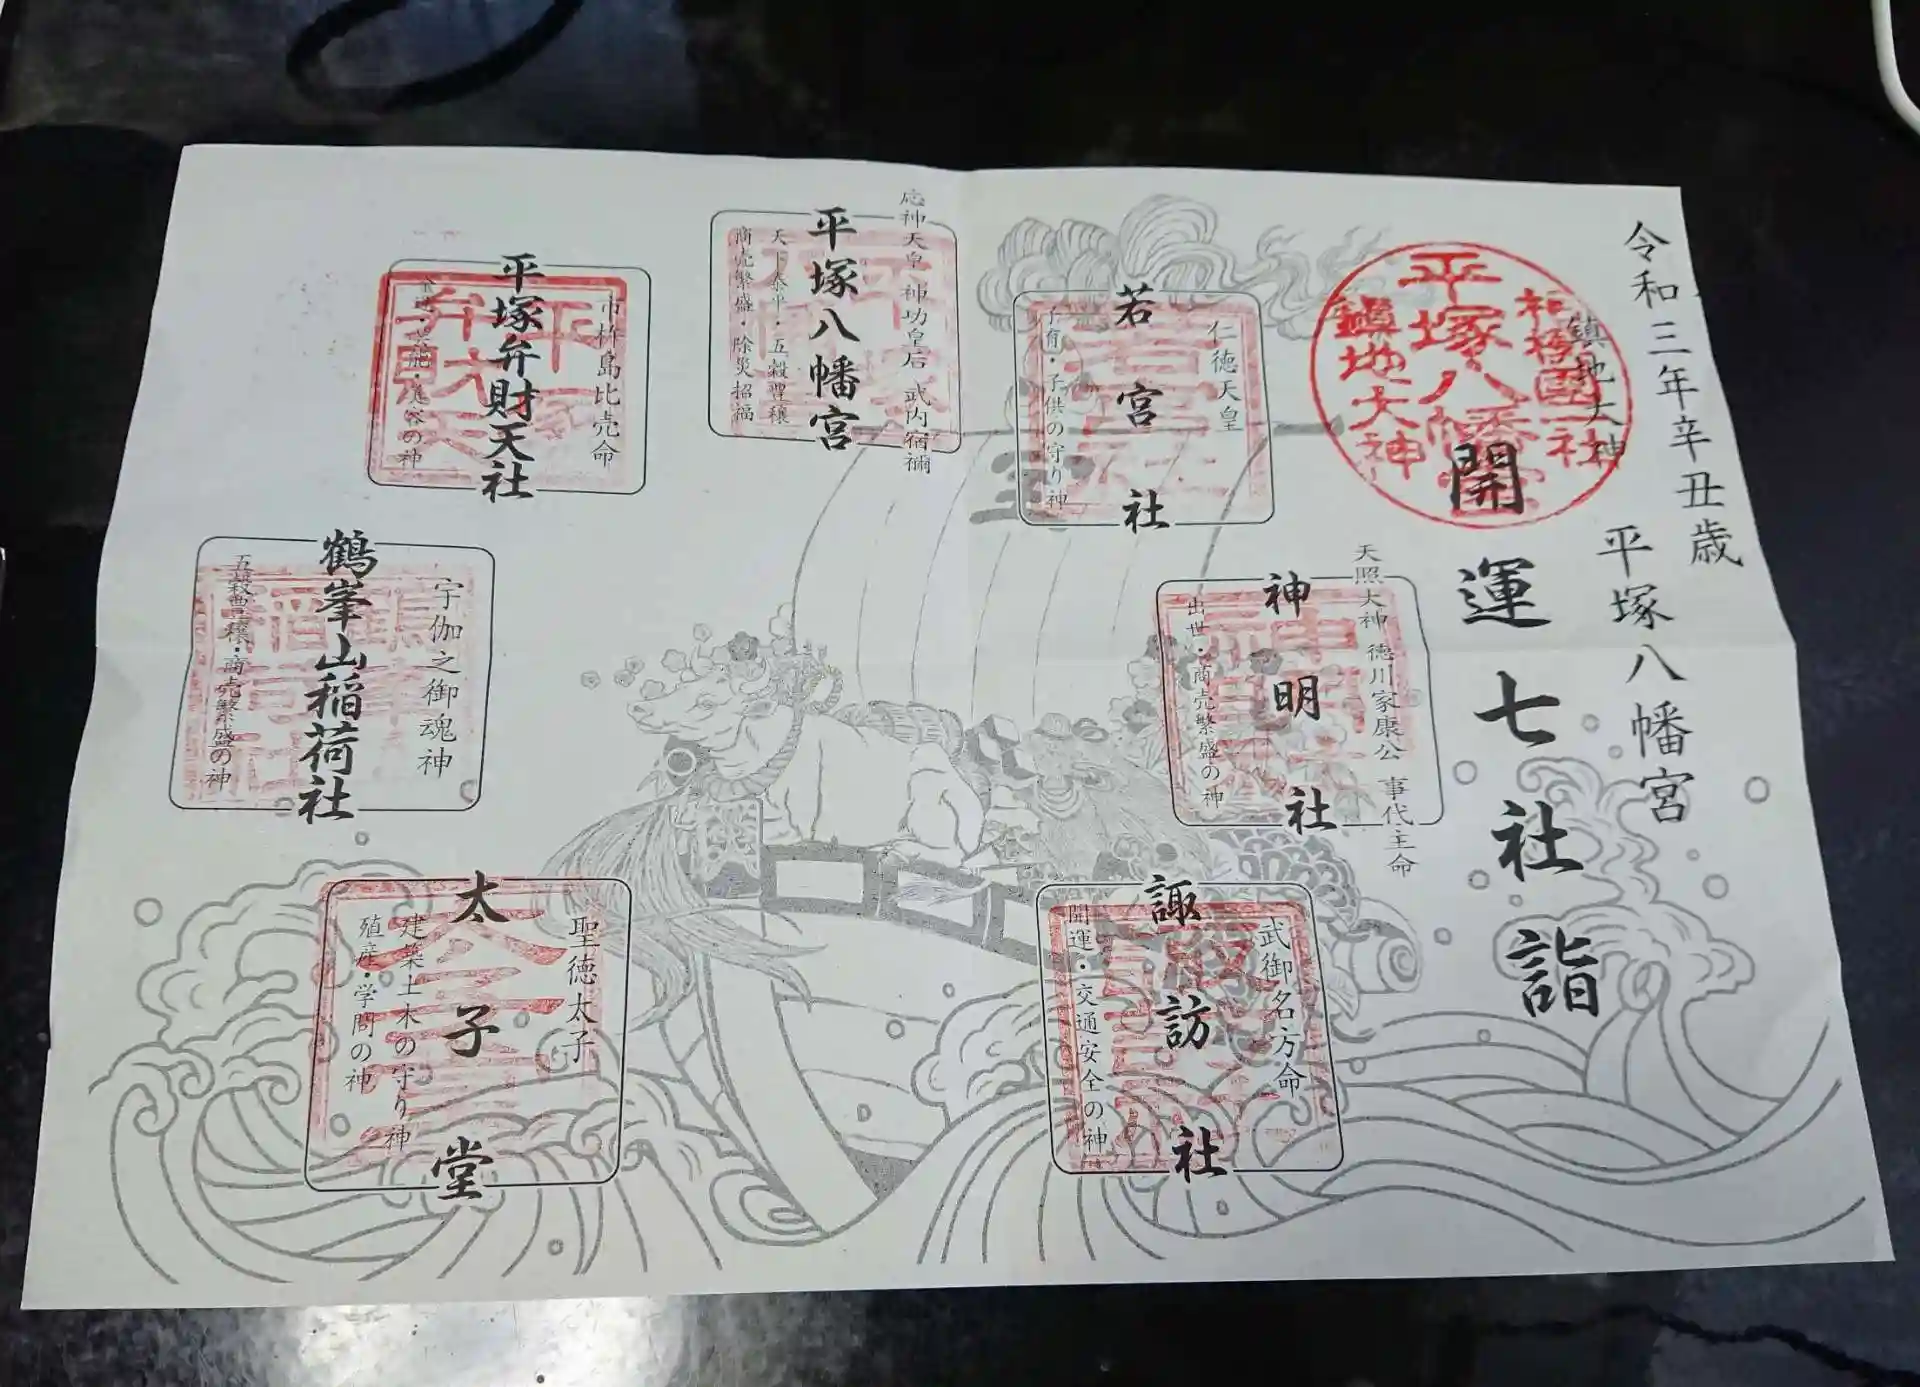 令和三年辛丑歳
平塚八幡宮
鎮地大神
相模國一社
平塚八幡宮
鎮地大神
開運七社詣
仁徳天皇
若宮社
子育・子供の守り神
天照大神 徳川家康公 事代主命
神明社
出世・商売繁盛の神
武御名方命
諏訪社
開運・交通安全の神
応神天皇 神功皇后 武内宿禰
平塚八幡宮
天下泰平・五穀豊穣
商売繁盛・除災招福
市杵島比売命
平塚弁財天社
宇伽之御魂神
鶴峯山稲荷社
五穀豊穣・商売繁盛の神
聖徳太子
太子堂
建築土木の守り神
殖産・学問の神